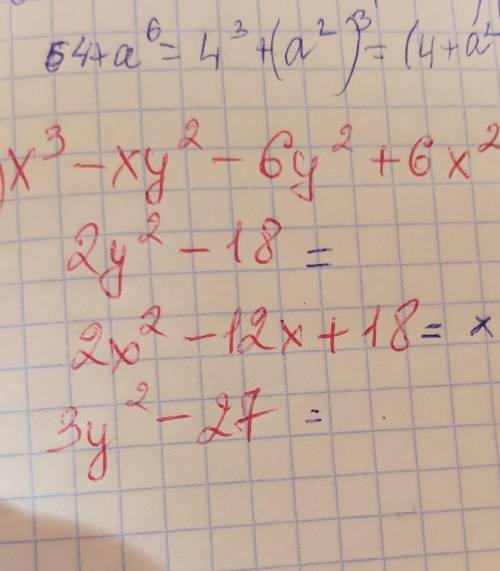 64+a⁶= 4³+(a²)³= (4+a²
)x³ – xy² – 6y² + 6x²
2y² – 18 =
2x² – 12x + 18 = x
3y² – 27 =